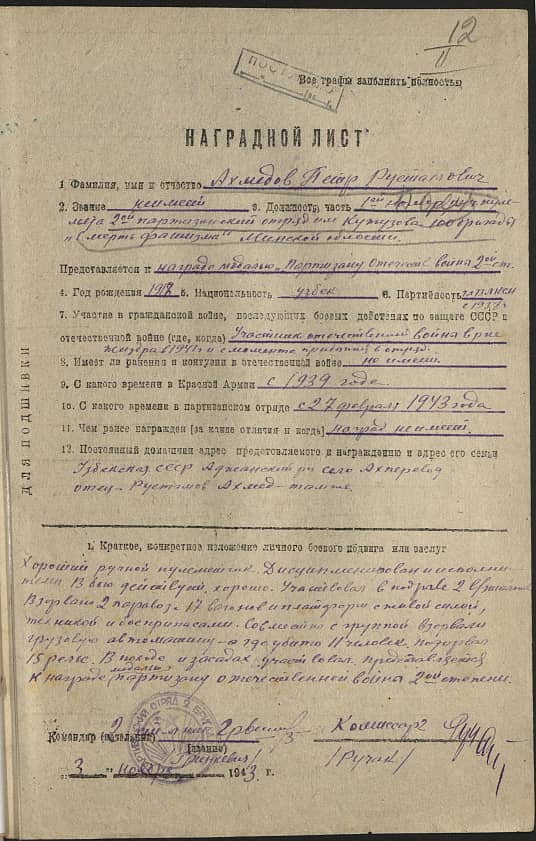 12
II
Все графы заполнять полностью
НАГРАДНОЙ ЛИСТ
1. Фамилия, имя и отчество Ахмедов Петр Рустамович
2. Звание не имеет 3. Должность, часть 1ый номер руч. пуле-
мета 2ой партизанский отряд им Кутузова 2ой бригады
"Смерть фашизма" Минской области.
Представляется к награде медалью "Партизану Отечеств войны 2ой ст.
4. Год рождения 5. Национальность узбек 6. Партийность чл ВЛКСМ
с 1939 г.
7. Участие в гражданской войне, последующих боевых действиях по защите СССР и
отечественной войне (где, когда) Участник отечественной войны
в 1941 г и с момента прибытия в отряд.
8. Имеет ли ранения и контузии в отечественной войне не имеет
9. С какого времени в Красной Армии с 1939 года
10. С какого времени в партизанском отряде с 27 февраля 1943 года
11. Чем ранее награжден (за какие отличия и когда) наград не имеет.
12. Постоянный домашний адрес представляемого к награждению и адрес его семьи
Узбекская ССР село
отец - Рустамов Ахмед - там же.
ДЛЯ ПОДШИВКИ
1. Краткое, конкретное изложение личного боевого подвига или заслуг
Хороший ручной пулеметчик. Дисциплинирован и исполни-
телен. В бою действует хорошо. Участвовал в подрыве 2 эшелонов
Взорвано 2 паровоза 17 вагонов и платформ с живой силой,
техникой и боеприпасами. Совместно с группой взорвали
грузовую автомашину - а где убито 11 человек, подорвал
15 рельс. В походе и засадах участвовал. Представляется
к награде медалью партизану отечественной войны 2ой степени.
Командир (начальник) Комиссар
(звание)
/Гринкевич/ /Ручан/
"3" ноября 1943 г.